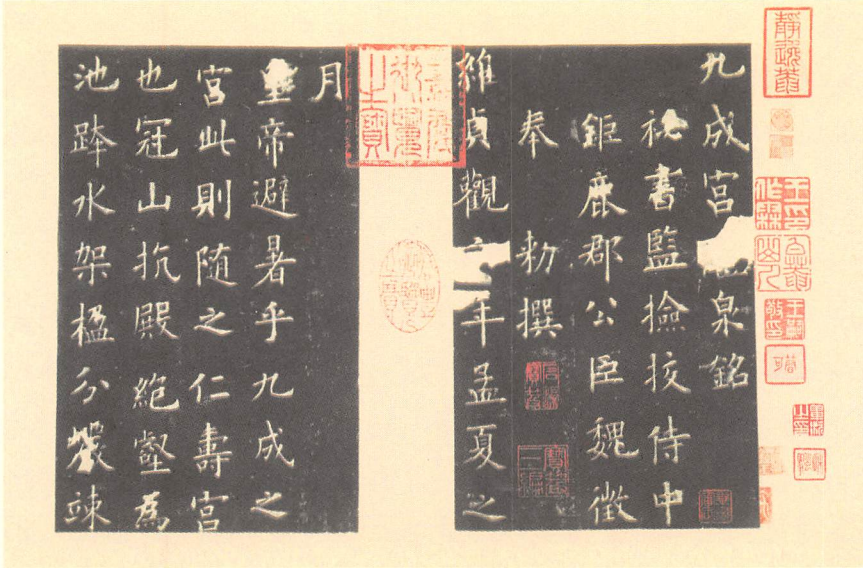 九成宮泉銘
秘書監撿挍侍中
鉅鹿郡公臣魏徵
奉勑撰
維貞觀年孟夏之
月
皇帝避暑乎九成之
宮此則隨之仁壽宮
也冠山抗殿絕壑為
池跨水架楹分巖竦